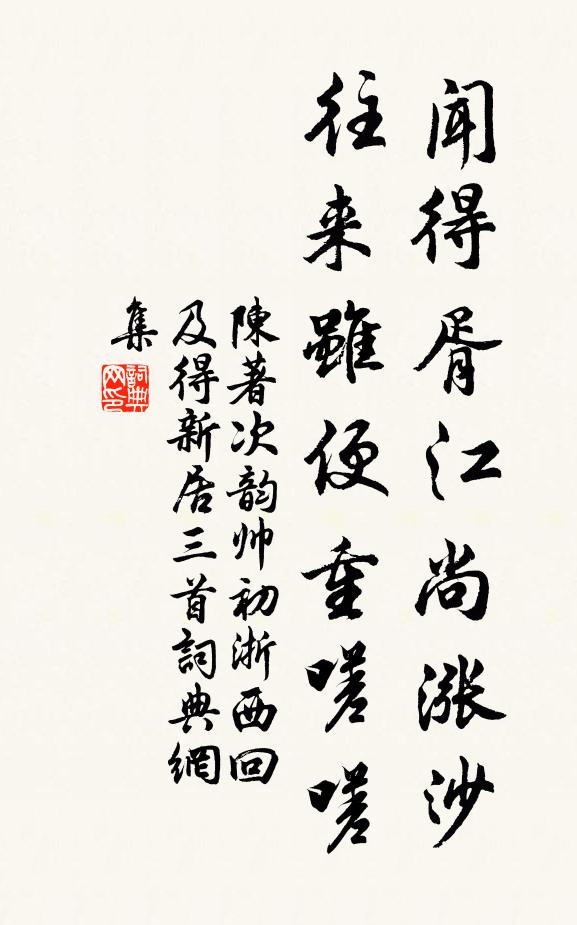 闻得胥江尚涨沙
往来雖便重嗟嗟
陳著次韵帅初浙西回
及得新居三首詞典網
集
詞典网印